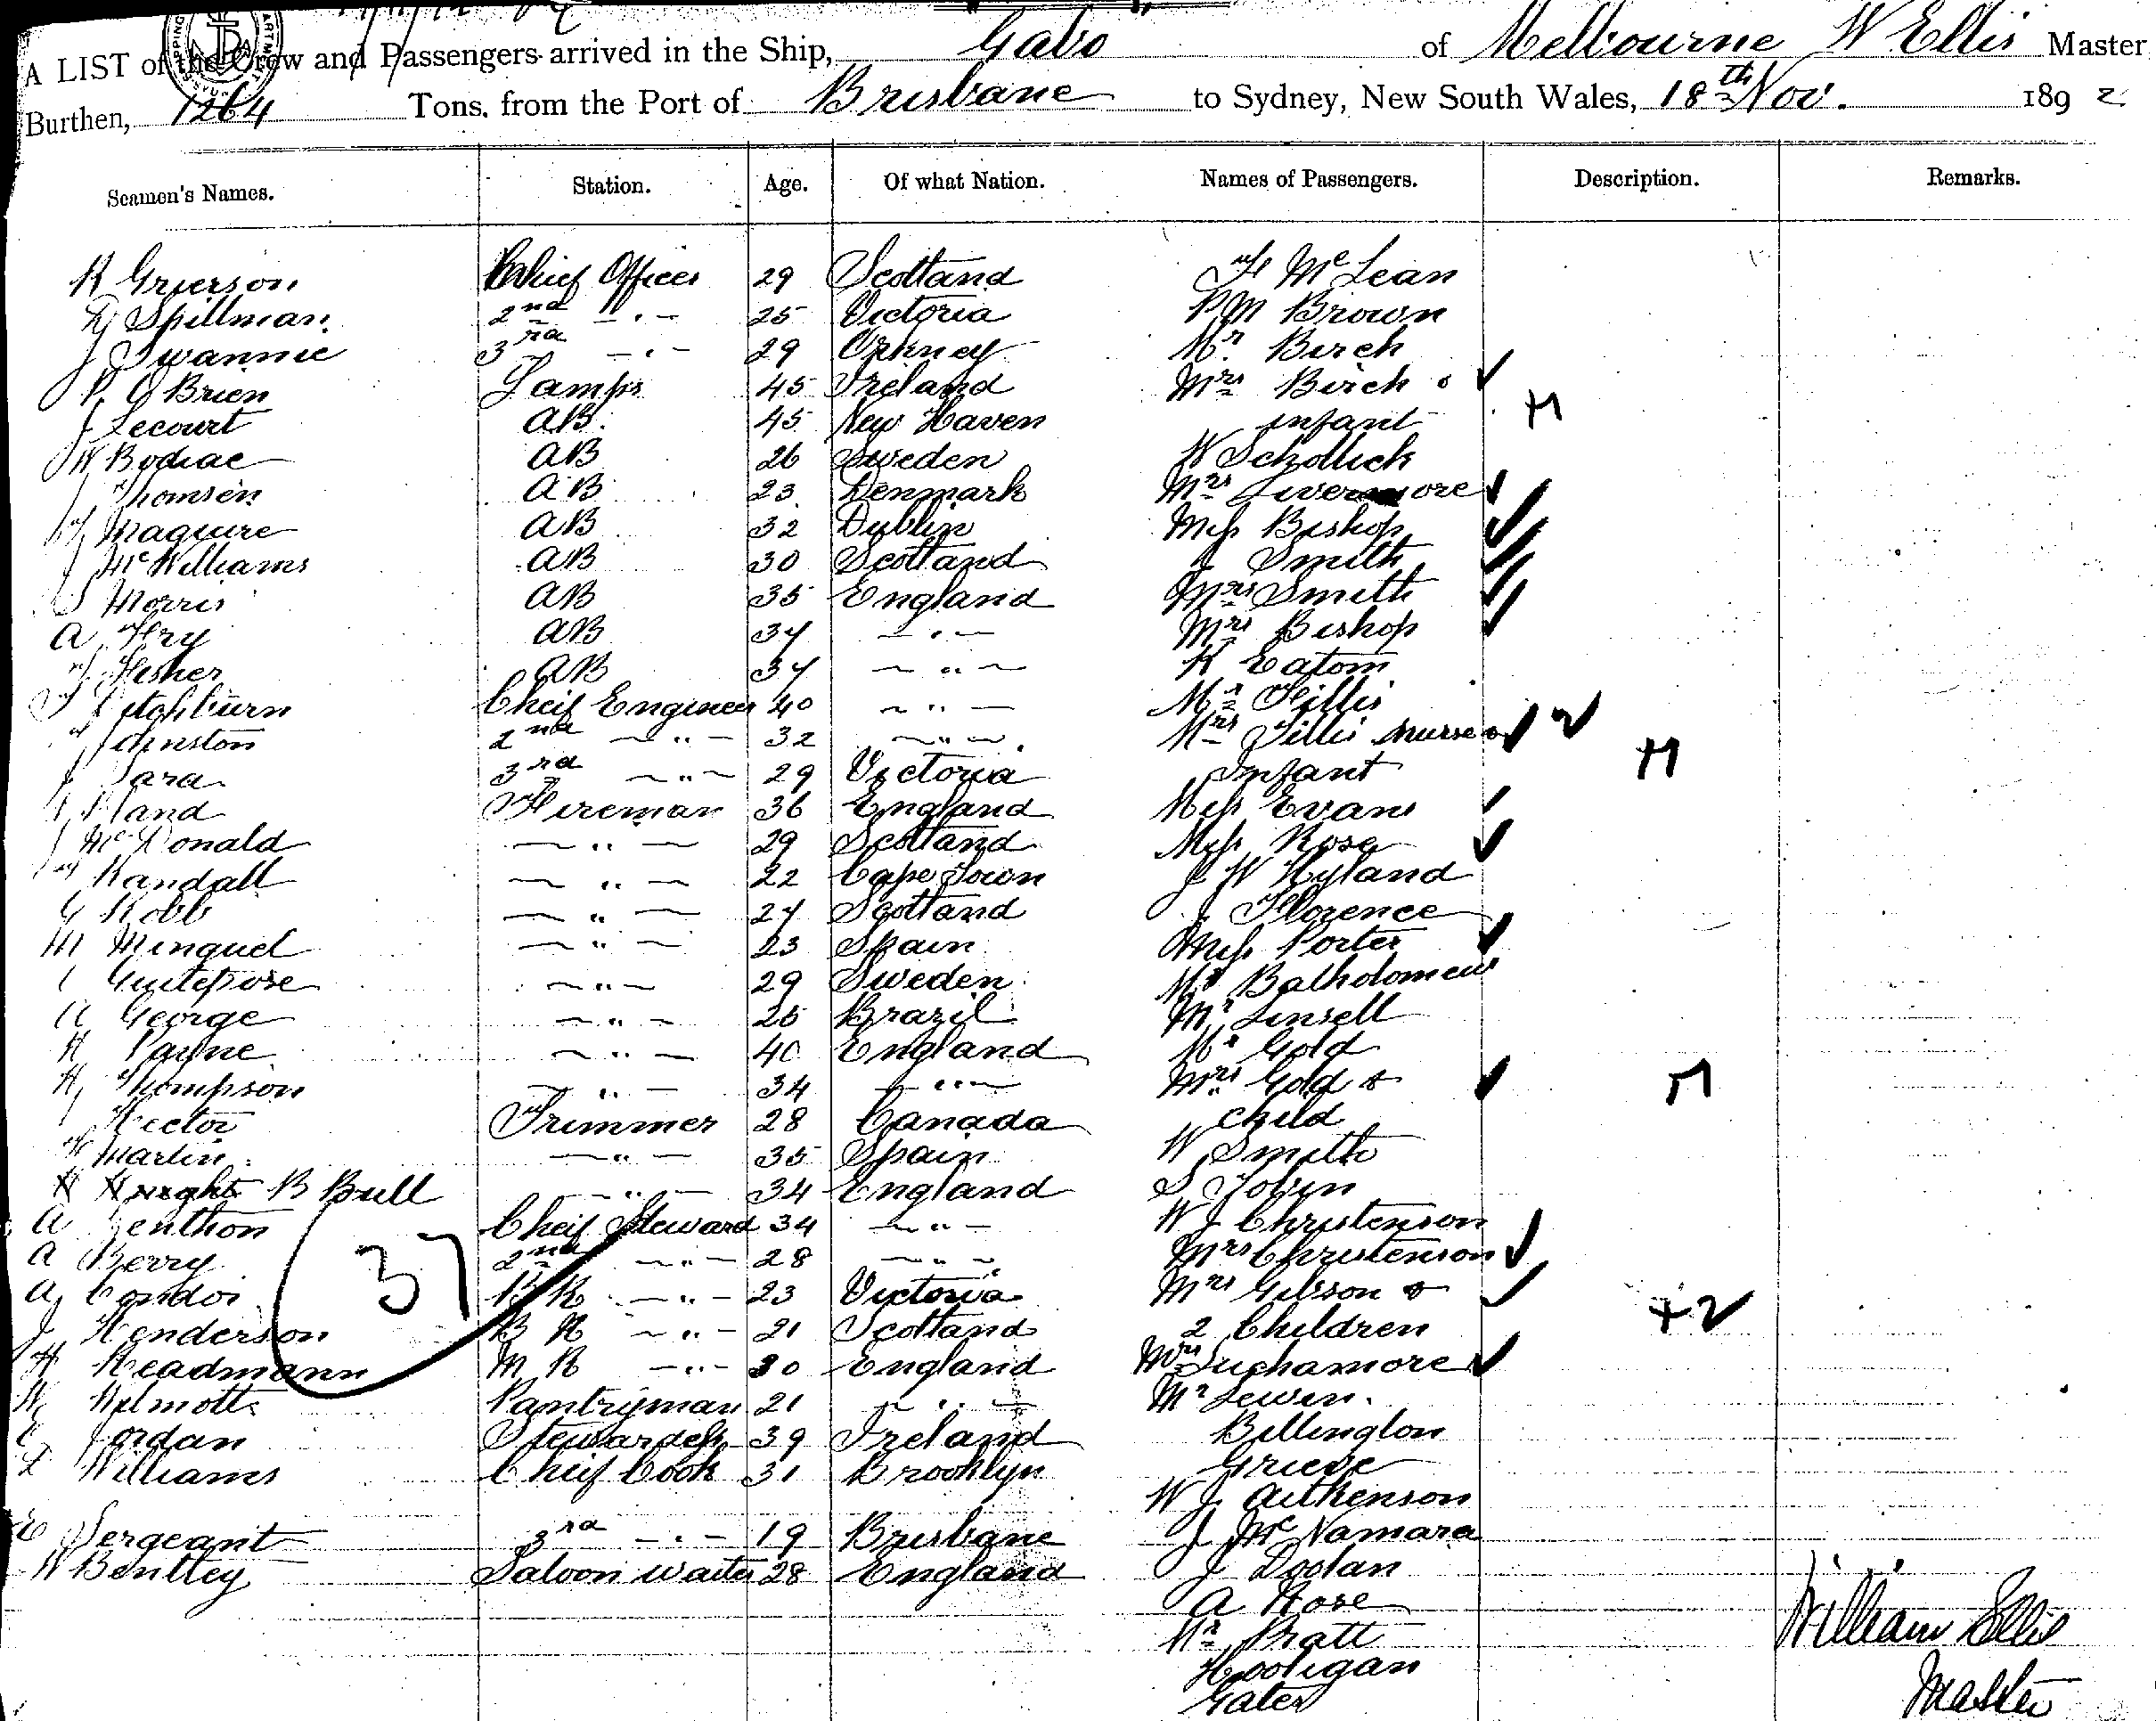 A LIST of the Crew and Passengers arrived in the Ship, Gabo of Melbourne W Ellis Master
Burthen, 1264 Tons, from the Port of Brisbane to Sydney, New South Wales, 18th Nov. 1892
Seamen's Names. Station. Age. Of what Nation. Names of Passengers. Description. Remarks.
R Grierson Chief Officer 29 Scotland F McLean
Spillman 2nd - " - 25 Victoria P M Brown
J Swannie 3rd - " - 29 Orkney Mr Birch
P O'Brien Lamps 45 Ireland Mrs Birch &
J Lecourt AB 45 New Haven infant
W Bodiac AB 26 Sweden W Schollick
J Thomsen AB 23 Denmark Mrs Livermore
Maguire AB 32 Dublin Miss Bishop
J McWilliams AB 30 Scotland J Smith
S Morris AB 35 England Mrs Smith
A Fry AB 34 - " - Mrs Bishop
Fisher AB 34 - " - K Eatom
Pitchburn Cheif Engineer 40 - " - Mr Tillis
Johnston 2nd - " - 32 - " - Mrs Tillis nurse &
J Sara 3rd - " - 29 Victoria Infant
Hand Fireman 36 England Miss Evans
J McDonald - " - 29 Scotland Miss Rose
Randall - " - 22 Cape Town J W Hyland
G Robb - " - 24 Scotland J Florence
M Minguel - " - 23 Spain Miss Porter
Gutepose - " - 29 Sweden Mr Batholomew
A George - " - 25 Brazil Mr Linsell
H Payne - " - 40 England Mr Gold
H Thompson - " - 34 - " - Mrs Gold &
Hector Trimmer 28 Canada Child
Martin - " - 35 Spain W Smith
H Knight B Bull - " - 34 England S Tobin
A Cheif Steward 34 - " - W J Christenson
A Berry 2nd - " - 28 - " - Mrs Christenson
A Condor B R - " - 23 Victoria Mrs Gibson &
37
J Henderson B R - " - 21 Scotland 2 Children +2
H Headmann M R - " - 30 England Mrs Luchamore
W Wilmott Pantryman 21 - " - Mr Lewin.
Jordan Stewardess 39 Ireland Billington
L Williams Cheif Cook 31 Brooklyn Grieve
W J Aitkenson
E Sergeant 3rd - " - 19 Brisbane J McNamara
W Bentley Saloon waiter 28 England J Doolan
A Rose
Mr Pratt William Ellis
Hooligan
Gater Master